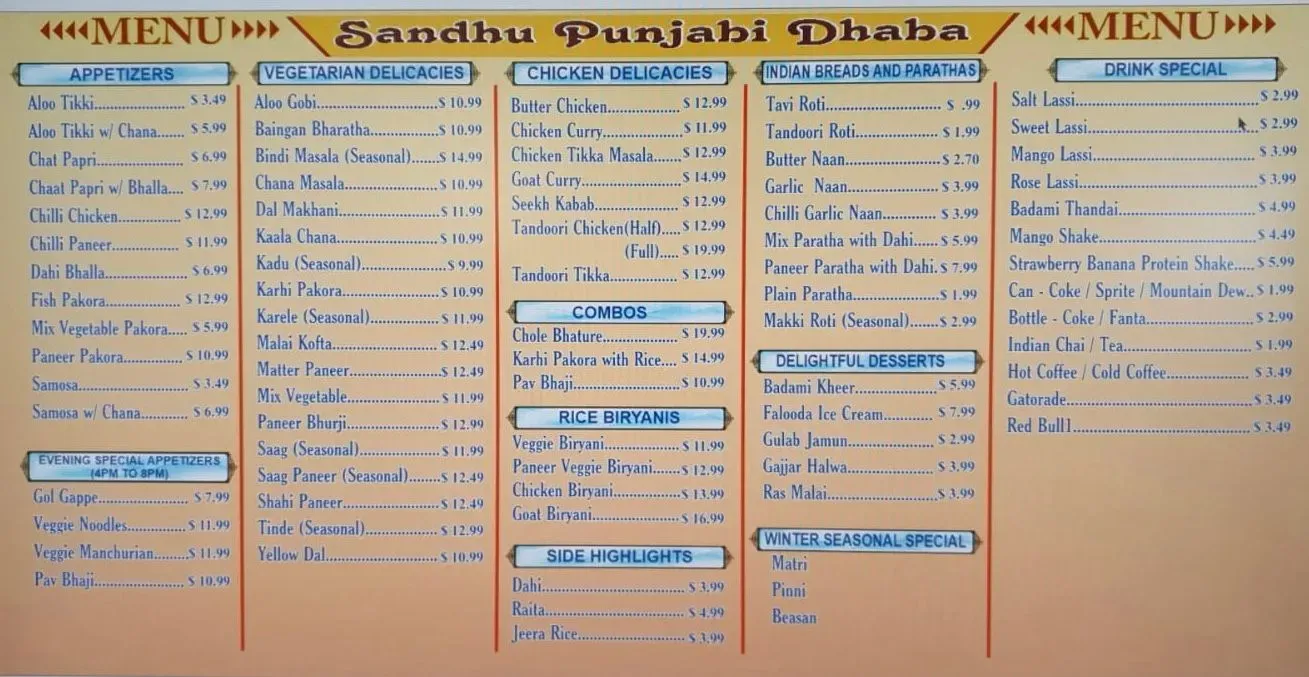 MENU
Sandhu Punjabi Dhaba
MENU
APPETIZERS
Aloo Tikki..................... $ 3.49
Aloo Tikki w/ Chana....... $ 5.99
Chat Papri.................... $ 6.99
Chaat Papri w/ Bhalla.... $ 7.99
Chilli Chicken................ $ 12.99
Chilli Paneer................ $ 11.99
Dahi Bhalla................... $ 6.99
Fish Pakora.................. $ 12.99
Mix Vegetable Pakora..... $ 5.99
Paneer Pakora.............. $ 10.99
Samosa........................ $ 3.49
Samosa w/ Chana........... $ 6.99
EVENING SPECIAL APPETIZERS
(4PM TO 8PM)
Gol Gappe..................... $ 7.99
Veggie Noodles.............. $ 11.99
Veggie Manchurian.........$ 11.99
Pav Bhaji...................... $ 10.99
VEGETARIAN DELICACIES
Aloo Gobi.............................$ 10.99
Baingan Bharatha.................$ 10.99
Bindi Masala (Seasonal)......$ 14.99
Chana Masala......................$ 10.99
Dal Makhani........................$ 11.99
Kaala Chana........................$ 10.99
Kadu (Seasonal)....................$ 9.99
Karhi Pakora.......................$ 10.99
Karele (Seasonal).................$ 11.99
Malai Kofta.........................$ 12.49
Matter Paneer.....................$ 12.49
Mix Vegetable......................$ 11.99
Paneer Bhurji......................$ 12.99
Saag (Seasonal)...................$ 11.99
Saag Paneer (Seasonal)........$ 12.49
Shahi Paneer.......................$ 12.49
Tinde (Seasonal)..................$ 12.99
Yellow Dal...........................$ 10.99
CHICKEN DELICACIES
Butter Chicken................$ 12.99
Chicken Curry.................$ 11.99
Chicken Tikka Masala......$ 12.99
Goat Curry......................$ 14.99
Seekh Kabab...................$ 12.99
Tandoori Chicken(Half).....$ 12.99
(Full)..... $ 19.99
Tandoori Tikka................ $ 12.99
COMBOS
Chole Bhature.................. $ 19.99
Karhi Pakora with Rice.... $ 14.99
Pav Bhaji........................$ 10.99
RICE BIRYANIS
Veggie Biryani.................$ 11.99
Paneer Veggie Biryani......$ 12.99
Chicken Biryani...............$ 13.99
Goat Biryani....................$ 16.99
SIDE HIGHLIGHTS
Dahi................................ $ 3.99
Raita............................... $ 4.99
Jeera Rice........................ $ 3.99
INDIAN BREADS AND PARATHAS
Tavi Roti......................... $ .99
Tandoori Roti................. $ 1.99
Butter Naan....................$ 2.70
Garlic Naan................... $ 3.99
Chilli Garlic Naan........... $ 3.99
Mix Paratha with Dahi...... $ 5.99
Paneer Paratha with Dahi. $ 7.99
Plain Paratha..................$ 1.99
Makki Roti (Seasonal).......$ 2.99
DELIGHTFUL DESSERTS
Badami Kheer..................$ 5.99
Falooda Ice Cream........... $ 7.99
Gulab Jamun................... $ 2.99
Gajjar Halwa................... $ 3.99
Ras Malai........................$ 3.99
WINTER SEASONAL SPECIAL
Matri
Pinni
Beasan
DRINK SPECIAL
Salt Lassi..........................................$ 2.99
Sweet Lassi.......................................$ 2.99
Mango Lassi..................................... $ 3.99
Rose Lassi.........................................$ 3.99
Badami Thandai................................ $ 4.99
Mango Shake.................................... $ 4.49
Strawberry Banana Protein Shake..... $ 5.99
Can - Coke / Sprite / Mountain Dew.. $ 1.99
Bottle - Coke / Fanta......................... $ 2.99
Indian Chai / Tea............................. $ 1.99
Hot Coffee / Cold Coffee................... $ 3.49
Gatorade...........................................$ 3.49
Red Bull1..........................................$ 3.49